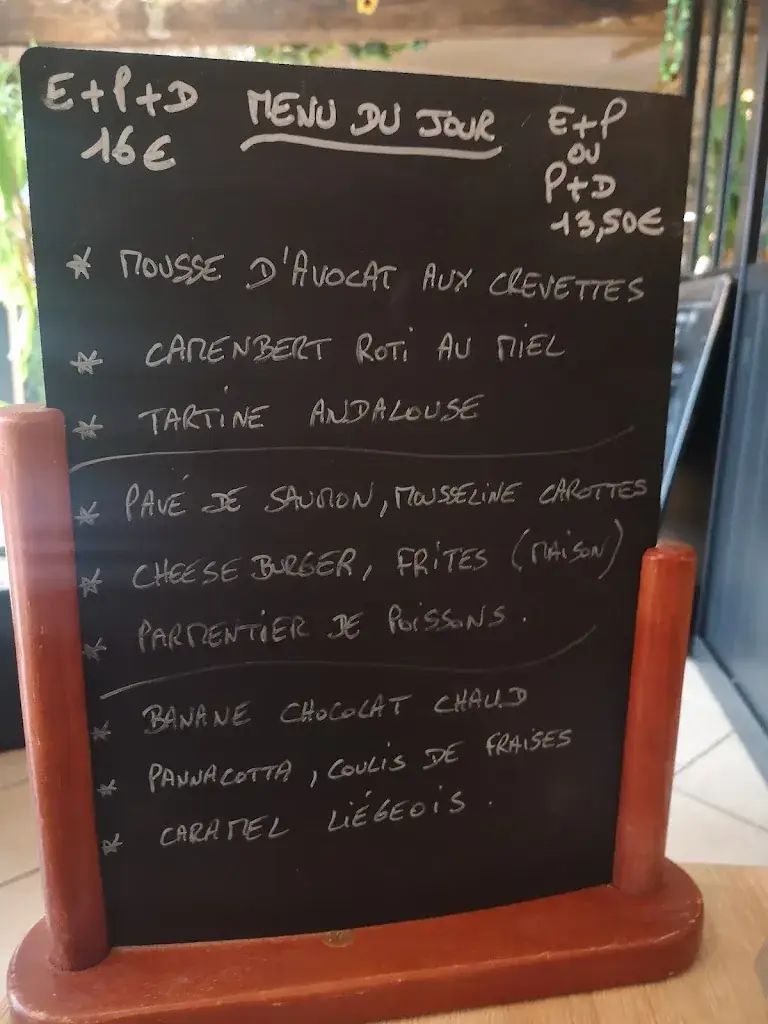 E+P+D
16€
MENU DU JOUR
E+P
OU
P+D
13,50€
* MOUSSE D'AVOCAT AUX CREVETTES
* CAMENBERT ROTi AU MIEL
* TARTINE ANDALOUSE
* PAVÉ DE SAUMON, MOUSSELINE CAROTTES
* CHEESE BURGER, FRITES (MAISON)
* PARMENTIER DE POiSSONS.
* BANANE CHOCOLAT CHAUD
* PANNACOTTA, COULIS DE FRAISES
* CARAMEL LIÉGEOIS.